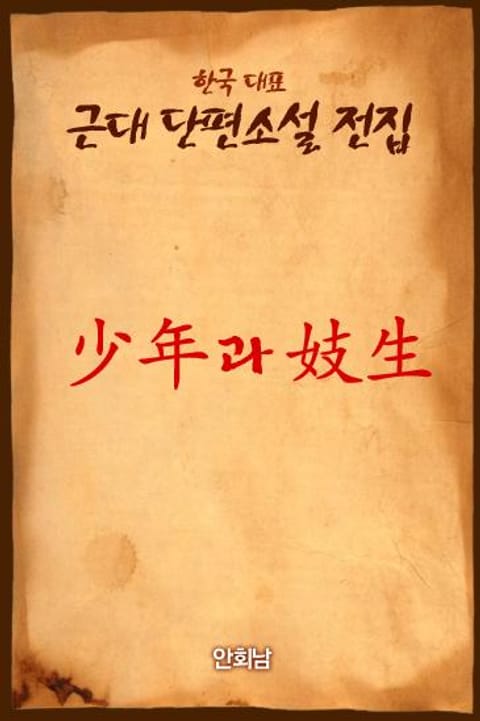 한국 대표
근대 단편소설 전집
少年과 妓生
안회남